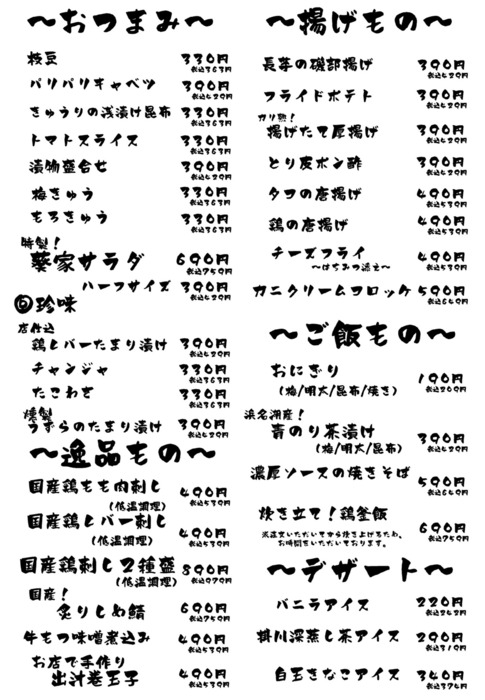 ～おつまみ～
枝豆 330円
税込363円
パリパリキャベツ 390円
税込429円
きゅうりの浅漬け昆布 330円
税込363円
トマトスライス 330円
税込363円
漬物盛合せ 390円
税込429円
梅きゅう 330円
税込363円
もろきゅう 330円
税込363円
特製！
葵家サラダ 690円
税込759円
ハーフサイズ 390円
税込429円
◎珍味
店仕込
鶏レバーたまり漬け 390円
税込429円
チャンジャ 330円
税込363円
たこわさ 330円
税込363円
燻製
うずらのたまり漬け 390円
税込429円
～逸品もの～
国産鶏もも肉刺し 490円
(低温調理) 税込539円
国産鶏レバー刺し 490円
(低温調理) 税込539円
国産鶏刺し2種盛 890円
(低温調理) 税込979円
国産！
炙りしめ鯖 690円
税込759円
牛もつ味噌煮込み 490円
税込539円
お店で手作り
出汁巻玉子 490円
税込539円
～揚げもの～
長芋の磯部揚げ 390円
税込429円
フライドポテト 390円
税込429円
カリ熱！
揚げたて厚揚げ 390円
税込429円
とり皮ポン酢 390円
税込429円
タコの唐揚げ 490円
税込539円
鶏の唐揚げ 490円
税込539円
チーズフライ 490円
～はちみつ添え～ 税込539円
カニクリームコロッケ 590円
税込649円
～ご飯もの～
おにぎり 190円
(梅/明太/昆布/焼き) 税込209円
浜名湖産！
青のり茶漬け 390円
(梅/明太/昆布) 税込429円
濃厚ソースの焼きそば 590円
税込649円
炊き立て！鶏釜飯 690円
税込759円
※注文いただいてから炊き上げるため、
お時間をいただいております。
～デザート～
バニラアイス 220円
税込242円
掛川深蒸し茶アイス 290円
税込319円
白玉きなこアイス 340円
税込374円